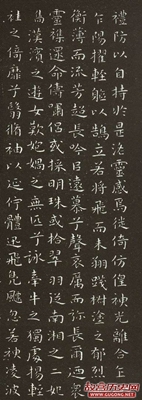 禮防以自持於是洛靈感焉徙倚仿偟神光離合乍
乍陽擢輕軀以鵠立若將飛而未翔踐椒塗之郁烈
衡薄而流芳超長吟以遠慕兮聲哀厲而弥長爾迺衆
靈襍遝命儔嘯侶或採明珠或拾翠羽從南湘之二妃
攜漢濱之遊女歎媧之無匹兮詠牽牛之獨處揚輕
袿之倚靡兮翳脩袖以延佇體迅飛鳧飄忽若神凌波